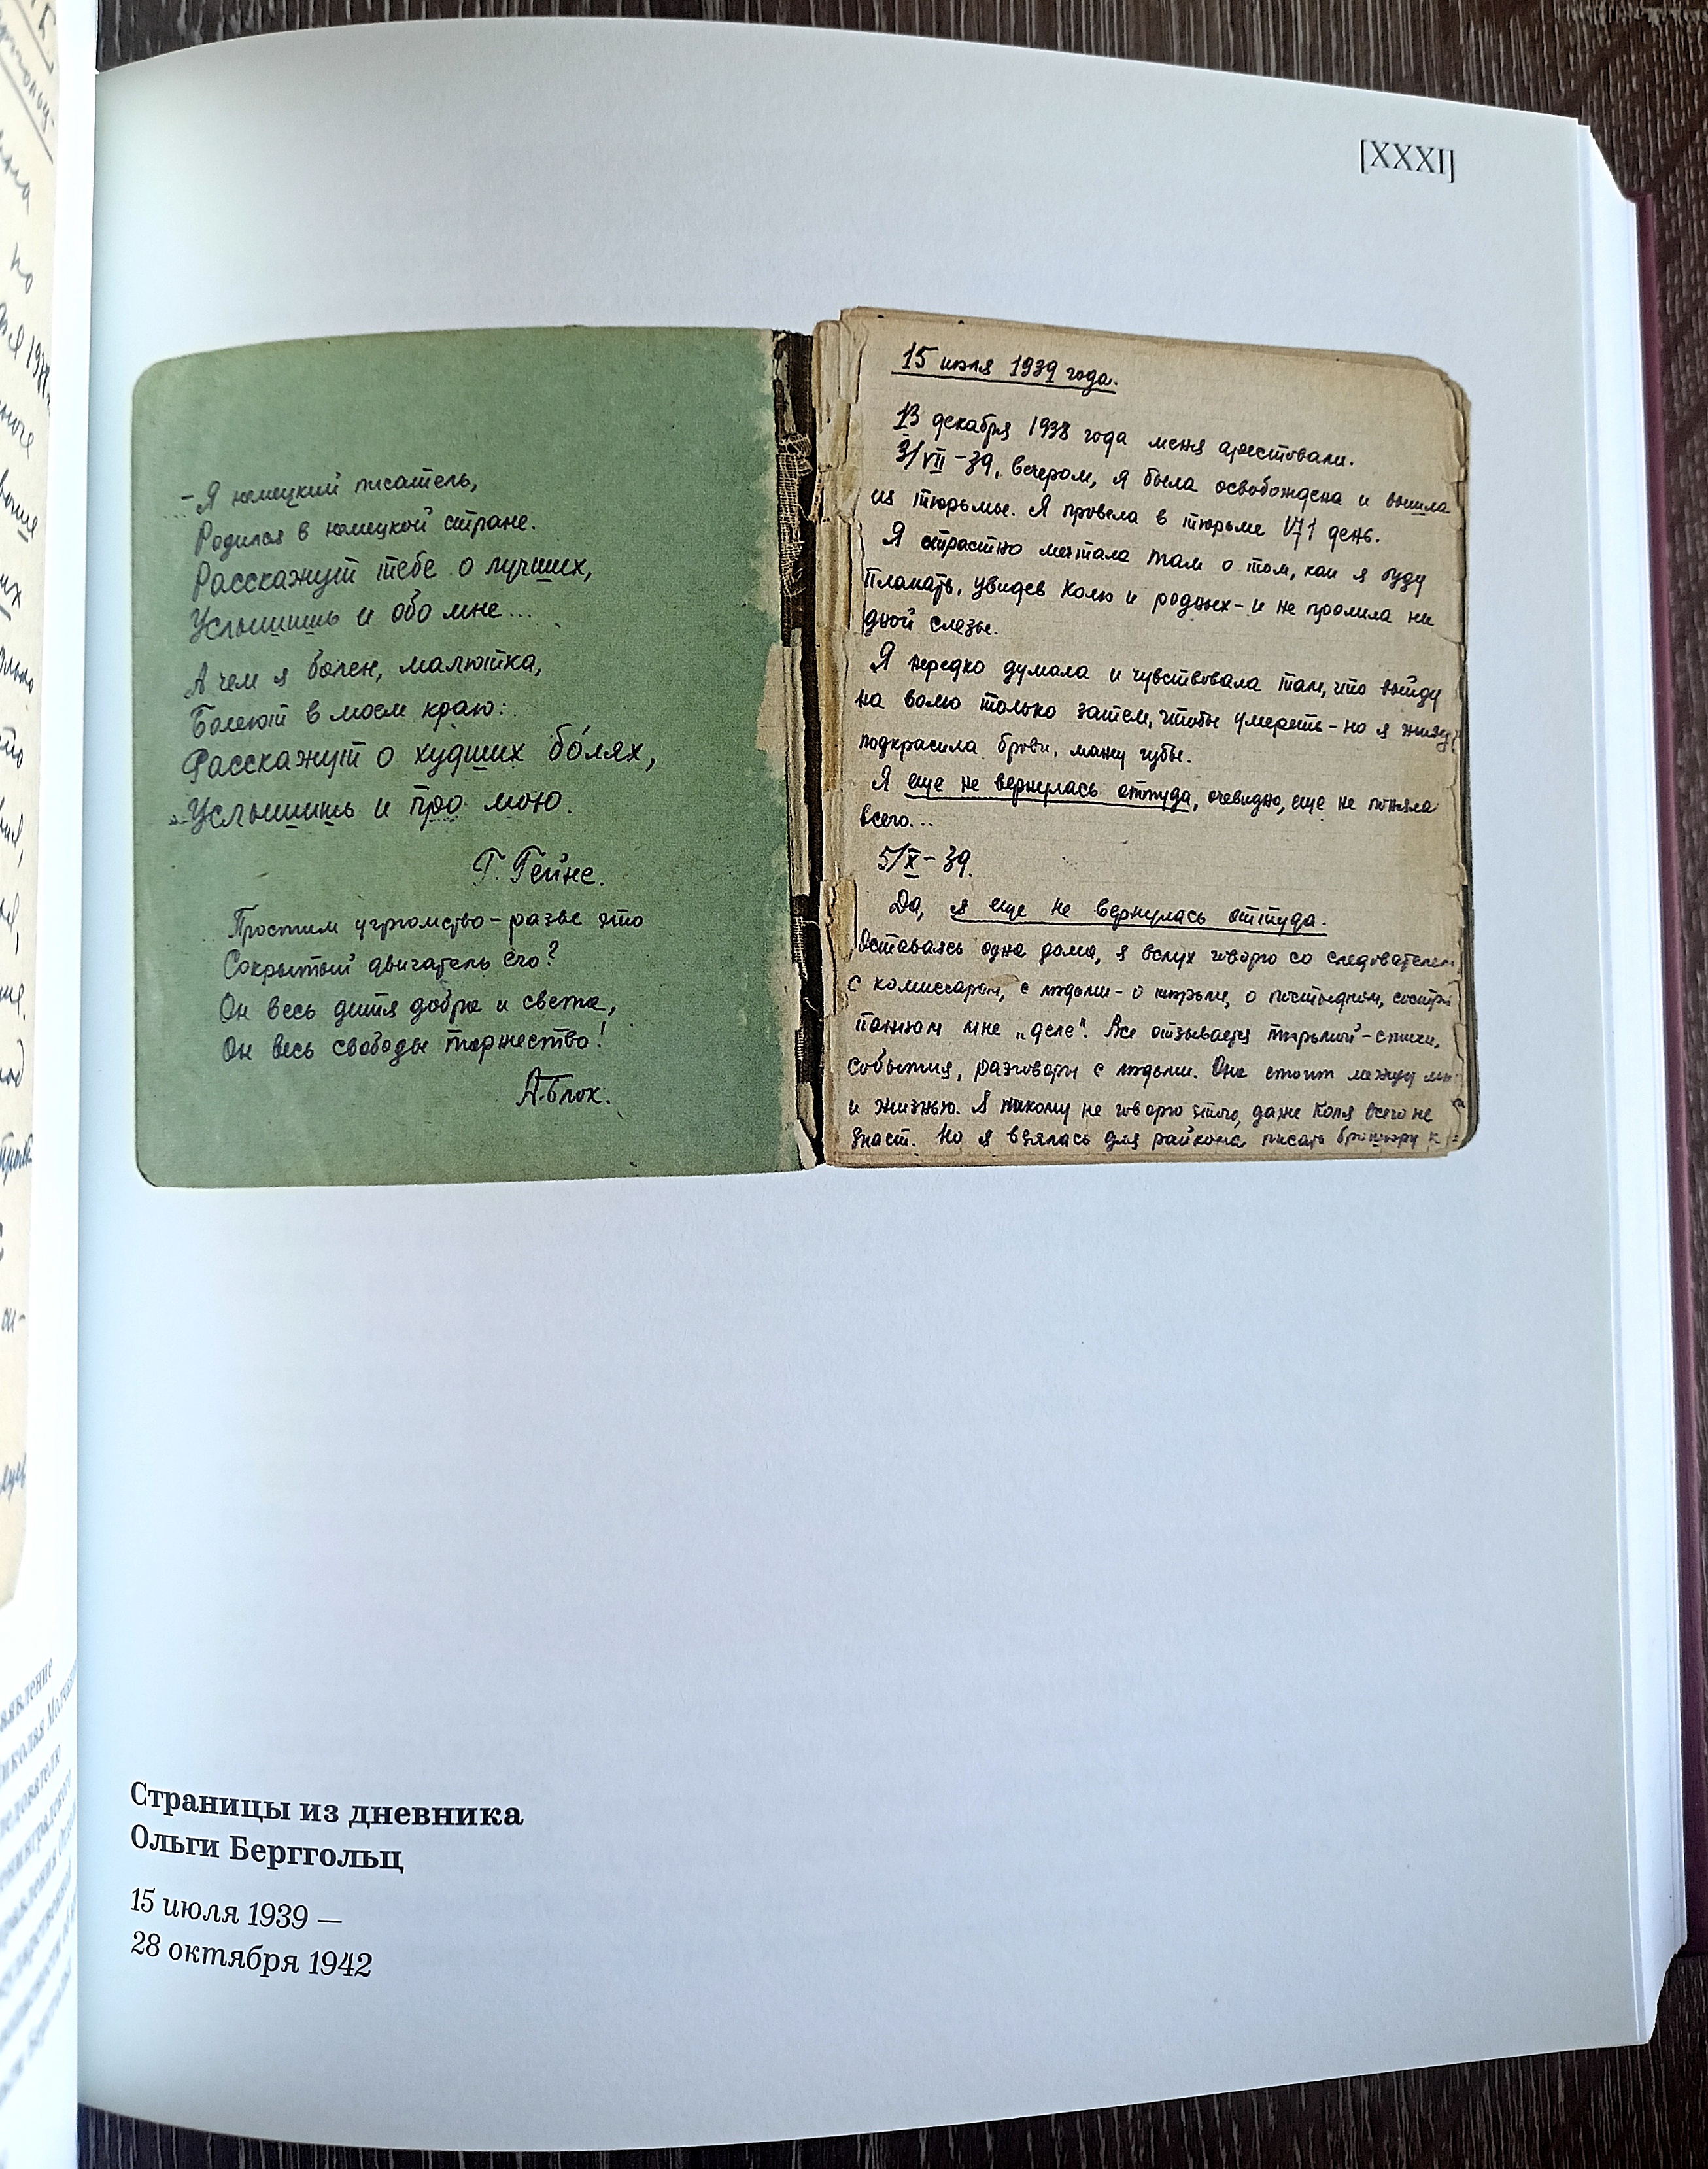 [XXXI]
- Я немецкий писатель,
Родился в немецкой стране.
Расскажут тебе о лучших,
Услышишь и обо мне...
А чем я болен, малютка,
Болеют в моем краю:
Расскажут о худших бо́лях,
Услышишь и про мою.
Г. Гейне.
Простим угрюмство - разве это
Сокрытый двигатель его?
Он весь дитя добра и света,
Он весь свободы торжество!
А. Блок.
15 июля 1939 года.
13 декабря 1938 года меня арестовали.
3/VII-39, вечером, я была освобождена и вышла
из тюрьмы. Я провела в тюрьме 171 день.
Я страстно мечтала там о том, как я буду
плакать, увидев Колю и родных - и не пролила ни
одной слезы.
Я нередко думала и чувствовала там, что выйду
на волю только затем, чтобы умереть - но я живу,
подкрасила брови, мажу губы.
Я еще не вернулась оттуда, очевидно, еще не поняла
всего...
5/X-39.
Да, я еще не вернулась оттуда.
Оставаясь одна дома, я вслух говорю со следователем,
с комиссаром, с людьми - о тюрьме, о постыдном, состря
панном мне „деле". Все отзывается тюрьмой - стихи,
события, разговоры с людьми. Она стоит между
и жизнью. Я никому не говорю этого, даже Коля всего не
знает. Но я взялась для райкома писать брошюру к
Страницы из дневника
Ольги Берггольц
15 июля 1939 —
28 октября 1942